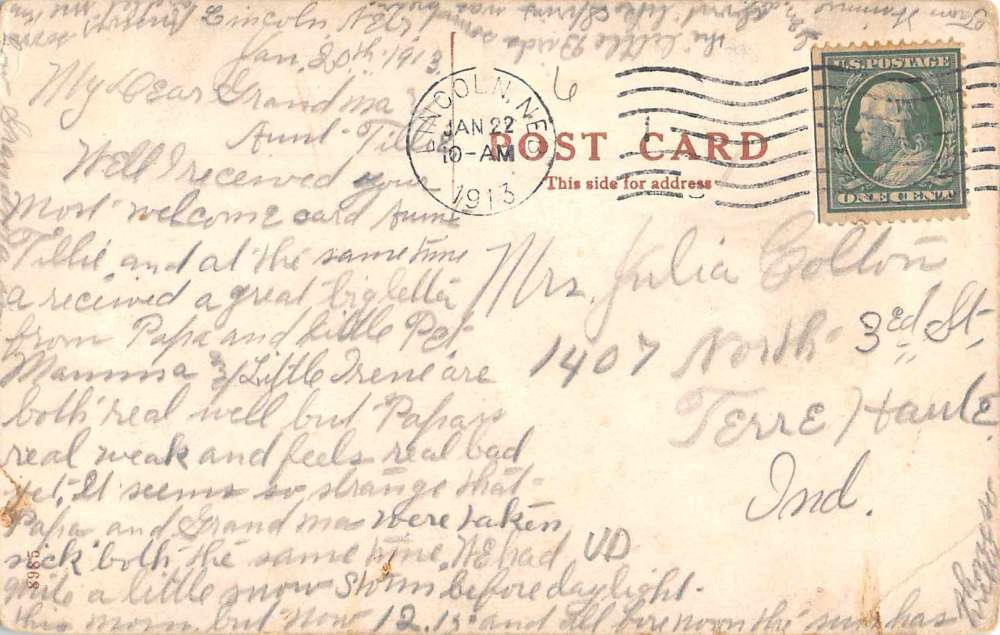 Lincoln, Neb,
Jan. 20th 1913
My Dear Grandma &
Aunt Tillie
Well I received your
most welcome card Aunt
Tillie, and at the same time
a received a great big letta
from Papa and Little Pet
Mamma & Little Irene are
both real well but Papa is
real weak and feels real bad
yet, It seems so strange that
Papa and Grand ma were taken
sick both the same time, WE had
quite a little snow storm before daylight
this morn, but now 12.15 and all fore noon the sun has
LINCOLN, NEB
JAN 22
10-AM
1913
6
POST CARD
This side for address
U.S. POSTAGE
ONE CENT
Mrs. Julia Colton
1407 North 3ed St
TERRE HautE
Ind.
UD
8985
the little Birds